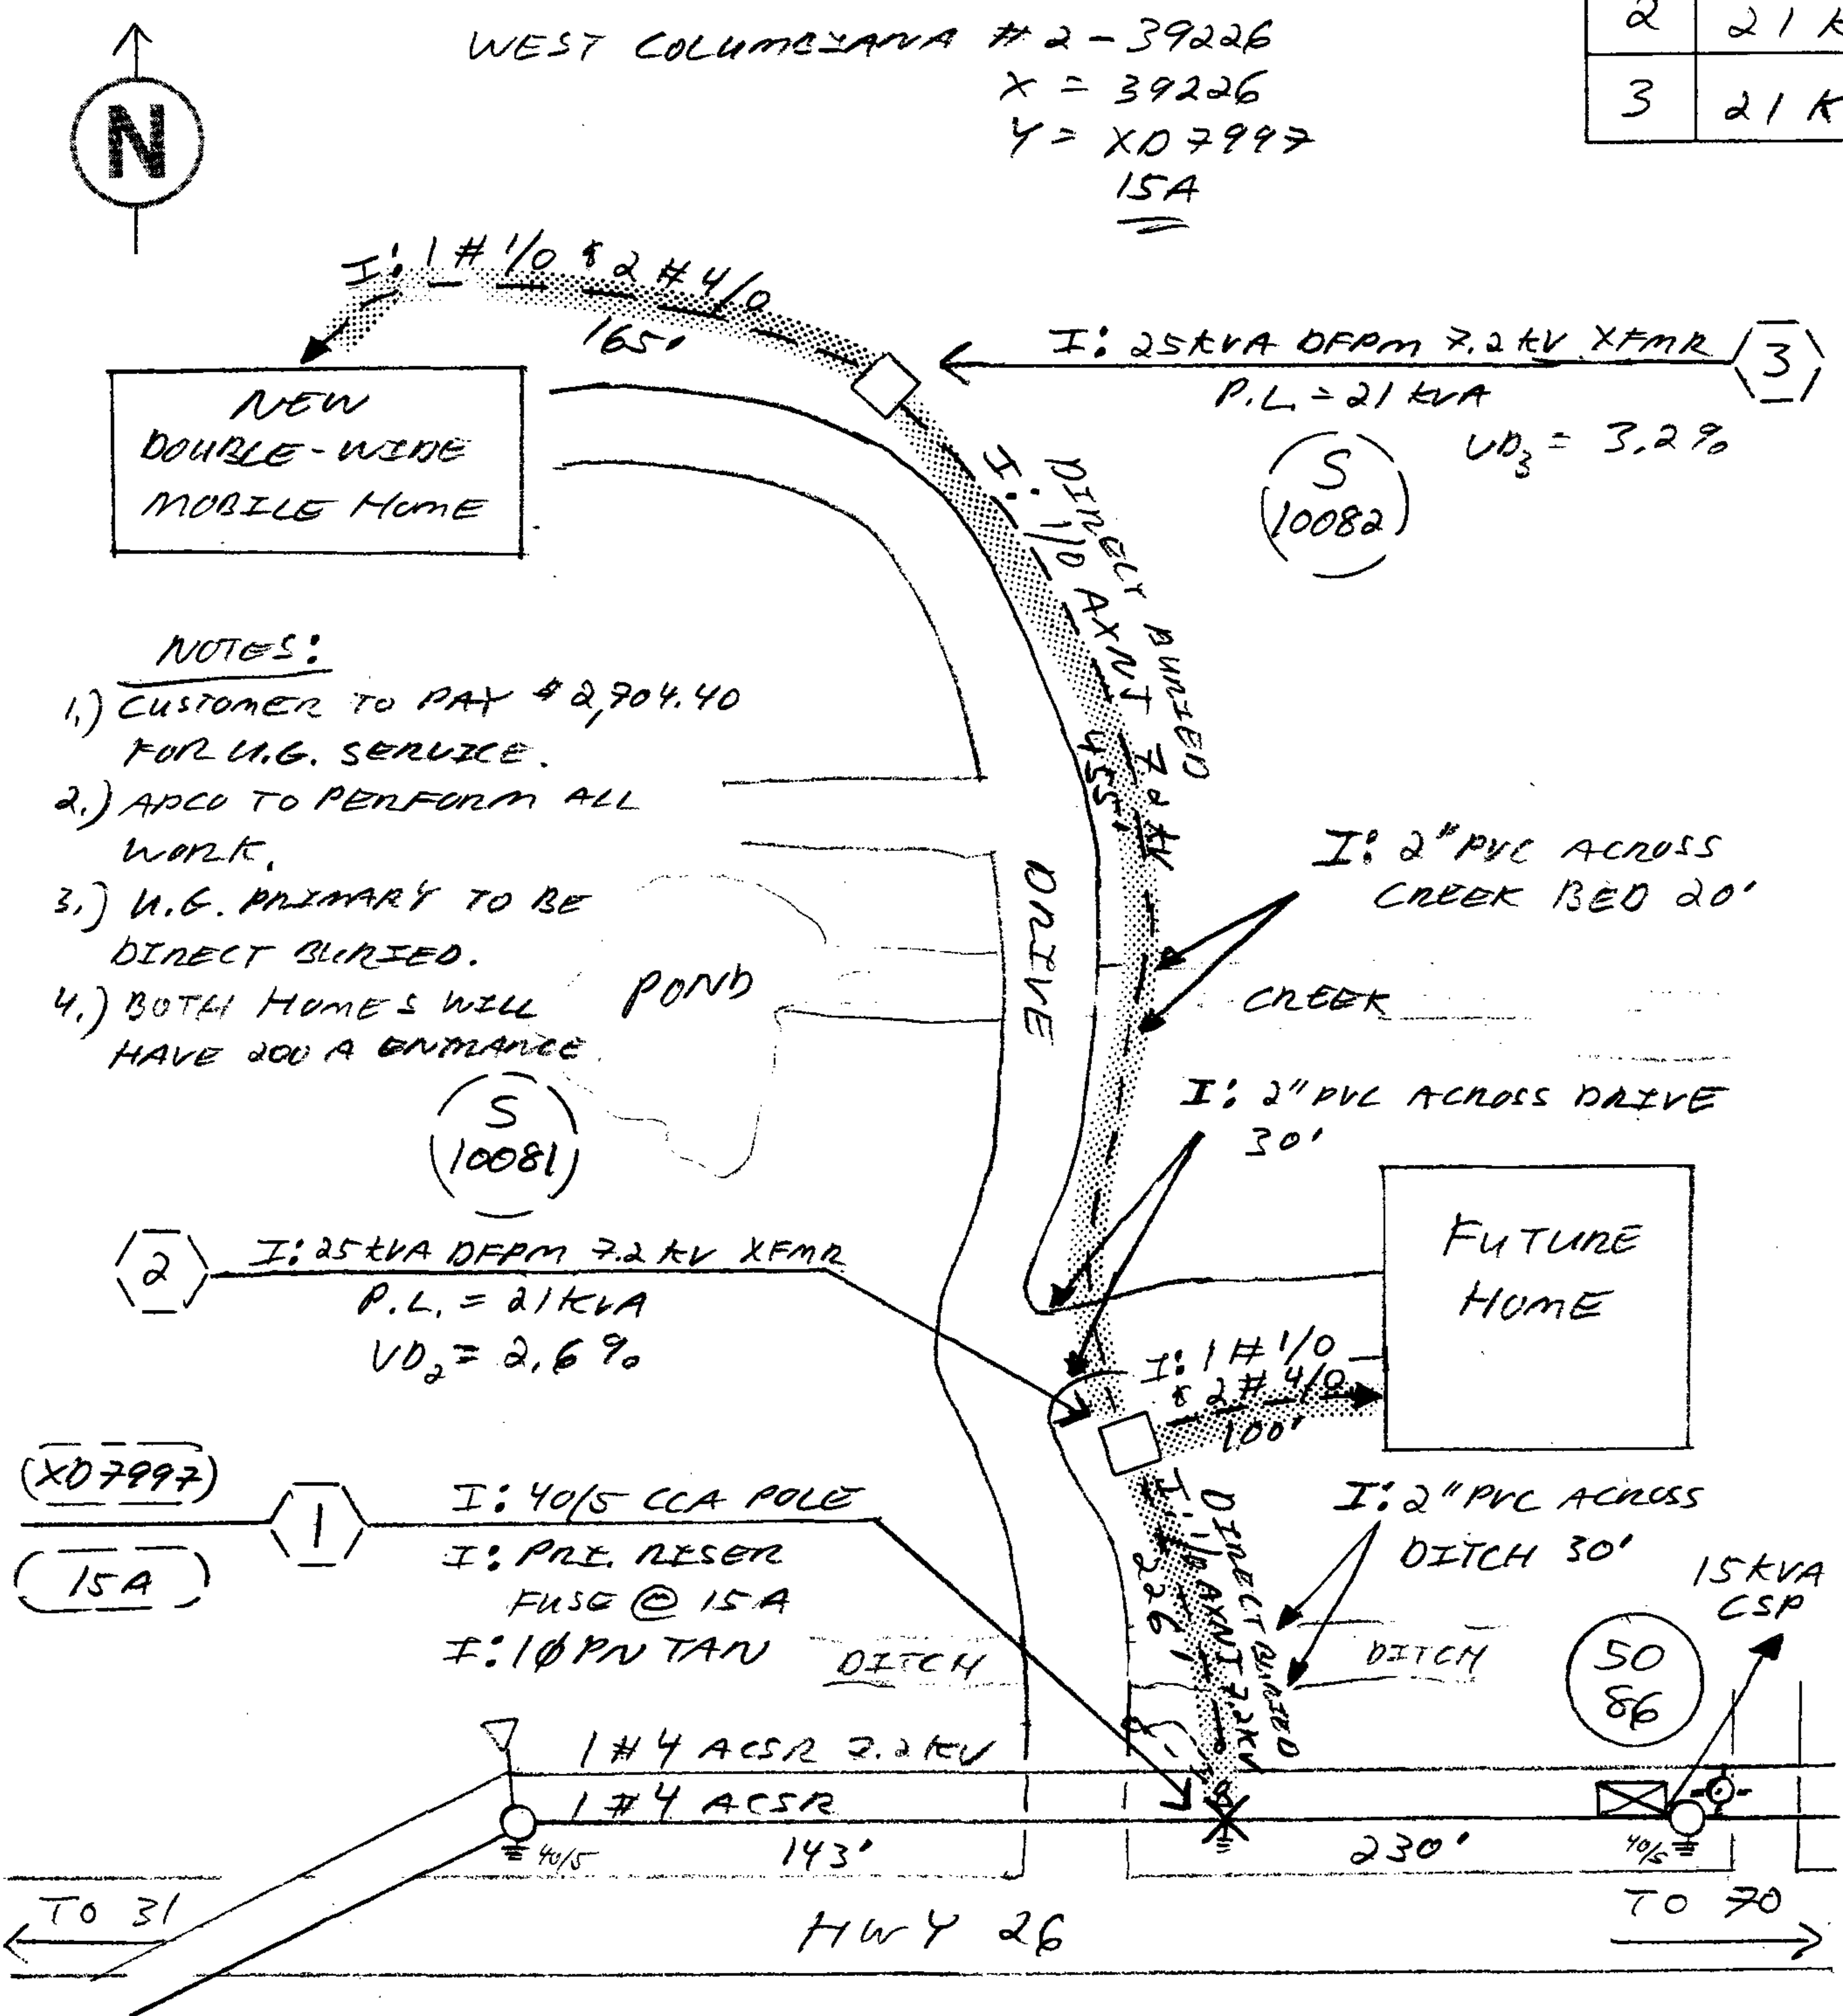 N
WEST COLUMBIANA # 2 - 39226
X = 39226
Y = XD 7997
15A
2 21 K
3 21 K
I: 1 # 1/0 & 2 # 4/0
165'
NEW
DOUBLE-WIDE
MOBILE HOME
I: 25 KVA DFPM 7.2 KV XFMR
3
P.L. = 21 KVA
VD3 = 3.2 %
S
10082
DIRECT BURIED
I: 1/0 AXNJ 7.2 KV
455'
NOTES:
1.) CUSTOMER TO PAY $ 2,704.40
FOR U.G. SERVICE.
2.) APCO TO PERFORM ALL
WORK.
3.) U.G. PRIMARY TO BE
DIRECT BURIED.
4.) BOTH HOMES WILL
HAVE 200 A ENTRANCE
POND
DRIVE
I: 2" PVC ACROSS
CREEK BED 20'
CREEK
S
10081
I: 2" PVC ACROSS DRIVE
30'
2
I: 25 KVA DFPM 7.2 KV XFMR
P.L. = 21 KVA
VD2 = 2.6 %
FUTURE
HOME
I: 1 # 1/0
& 2 # 4/0
100'
(XD7997)
15A
1
I: 40/5 CCA POLE
I: PRI. RISER
FUSE @ 15A
I: 1Ø PN TAN
DIRECT BURIED
I: 1/0 AXNJ 7.2 KV
226'
I: 2" PVC ACROSS
DITCH 30'
DITCH
DITCH
15 KVA
CSP
50
86
8'
1 # 4 ACSR 7.2 KV
1 # 4 ACSR
40/5
143'
230'
40/5
TO 31
HWY 26
TO 70